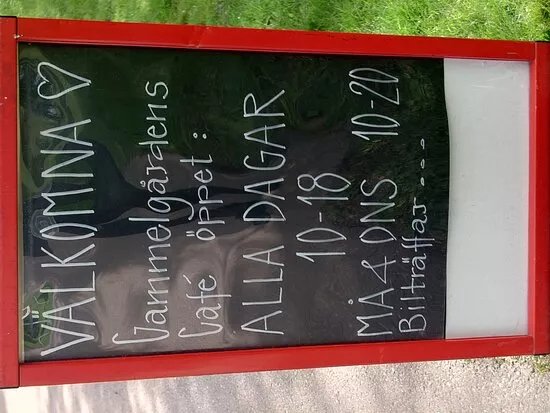 VÄLKOMNA ♡
Gammelgårdens
Café öppet :
ALLA DAGAR
10-18
MÅ & DNS 10-20
Bilträffar....